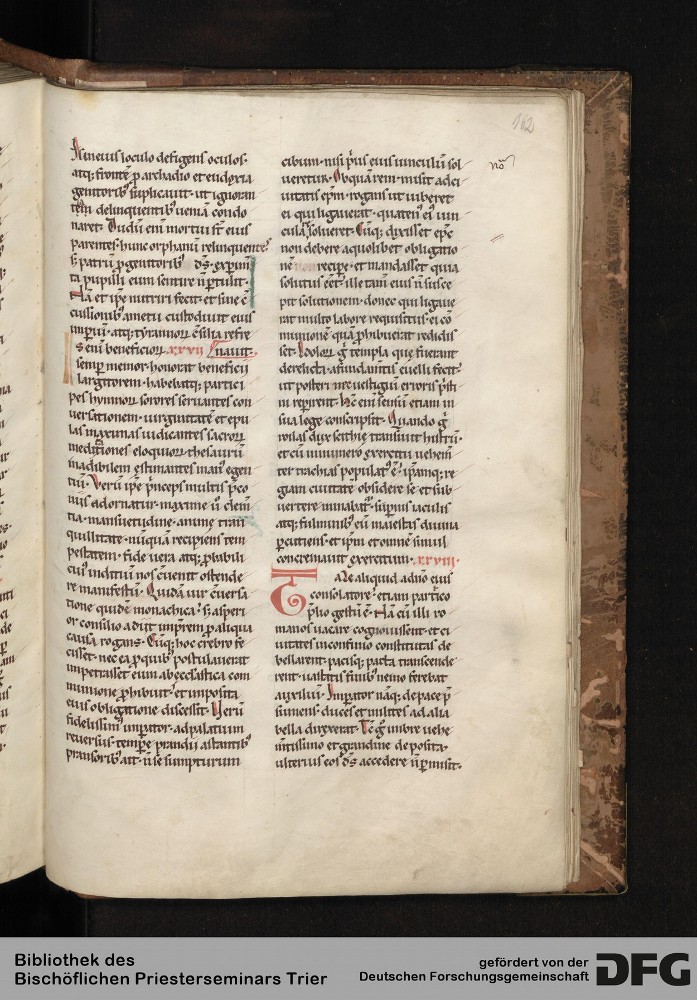 162
Asineius loculo defigens oculos·
atq; frontē ꝑ archadio et eudoxia
genitorib; suplicauit· ut ignoran
tem delinquentib; ueniā condo
naret· Dudū eni mortui s̄t eius
parentes· hunc orphanū relinquente
s; patrū ꝑgenitorib; d̄s· expim
ta pupilli eum sentire n̄ ꝑtulit·
Nā et ip̄e nutriri fecit· et sine ꝯ
cussionib; ametu custodiuit eius
imperiū· atq; tyrannoꝝ ꝯsilia refre
s eni beneficioꝝ xxvii nauit·
semp memor· honorat beneficii
largitorem· habebatq; partici
pes hymnoꝝ sorores seruantes con
uersationem· uirginitatē et epu
las maximas iudicantes sacroꝝ
meditationes eloquioꝝ· thesaurū
inadibilem estimantes man egen
tiū· Verū ip̄e princeps multis p̄co
niis adornatur· maxime ū clem
tia· mansuetudine· anime tran
quillitate· nūquā recipiens tem
pestatem· fide uera atq; ꝓbabili
cuius indicium nos ꝯuenit ostende
re manifestū· Quidā uir ꝯuersa
tione quidē monachica· s; asperi
or consilio adiit imp̄rem ꝓ aliqua
causa rogans· Cūq; hoc crebro fe
cisset· nec ea ꝓ quib; postulauerat
impetrasset eum ab ecclastica com
munione ꝓhibuit· et imposita
eius obligatione discessit· Verū
fidelissim imperator· ad palatium
reuersus· tempore prandii astantib;
pransorib; ait· n̄ se sumpturum
cibum· nisi prius eius uinculū sol
ueretur· Ob quā rem· misit ad ci
uitatis ep̄m· rogans ut iuberet
ei qui ligauerat· quaten ei uin
cula solueret· Cūq; dixisset ep̄c
non debere a quolibet obligatio
nē recipe· et mandasset quia
solutus eēt· ille tam eius n̄ susce
pit solutionem· donec qui ligaue
rat multo labore requisitus· ei cō
munionē quā ꝓhibuerat reddidis
set· Idoloꝝ g̊ templa que fuerant
derelicta· a fundamtis euelli fecit·
ut posteri nec uestigiū erroris p̄sti
ni reperirent· h̄c eni sensū etiam in
sua lege conscripsit· Quando g̊
roilas dux scithie transiuit histrū·
et cū innumero exercitu uehem
ter trachias populat ē· ipāmq; re
giam ciuitatē obsidere se et sub
uertere minabat· supnis iaculis
atq; fulminib; eū maiestas diuina
percutiens· et ip̄m et omne simul
concremauit exercitum· xxviii·
Tale aliquid a dn̄o eius
consolatore· etiam partico
p̄lio gestū ē· Nā cū illi ro
manos uacare cognouissent· et ci
uitates in confinio constitutas de
bellarent· pacisq; pacta transcende
rent· uastatis finib; nemo ferebat
auxiliū· Imperator nāq; de pace p̄
sumens· duces et milites ad alia
bella duxerat· Tc̄ g̊ imbre uehe
mtissimo et grandine deposita·
ulterius eos d̄s accedere n̄ ꝑmisit·
no
Bibliothek des
Bischöflichen Priesterseminars Trier
gefördert von der
Deutschen Forschungsgemeinschaft
DFG